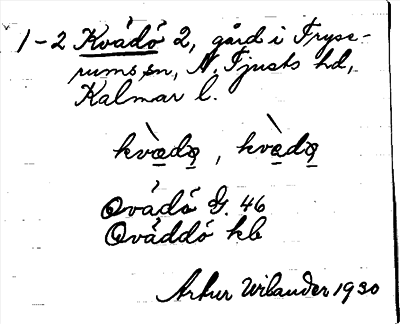 1-2 Kvädö 2, gård i Tryse-
rums sn, N. Tjusts hd,
Kalmar l.
kvædo̤, kvædo̤
Qvädö G. 46
Qväddö kb
Artur Wilander 1930